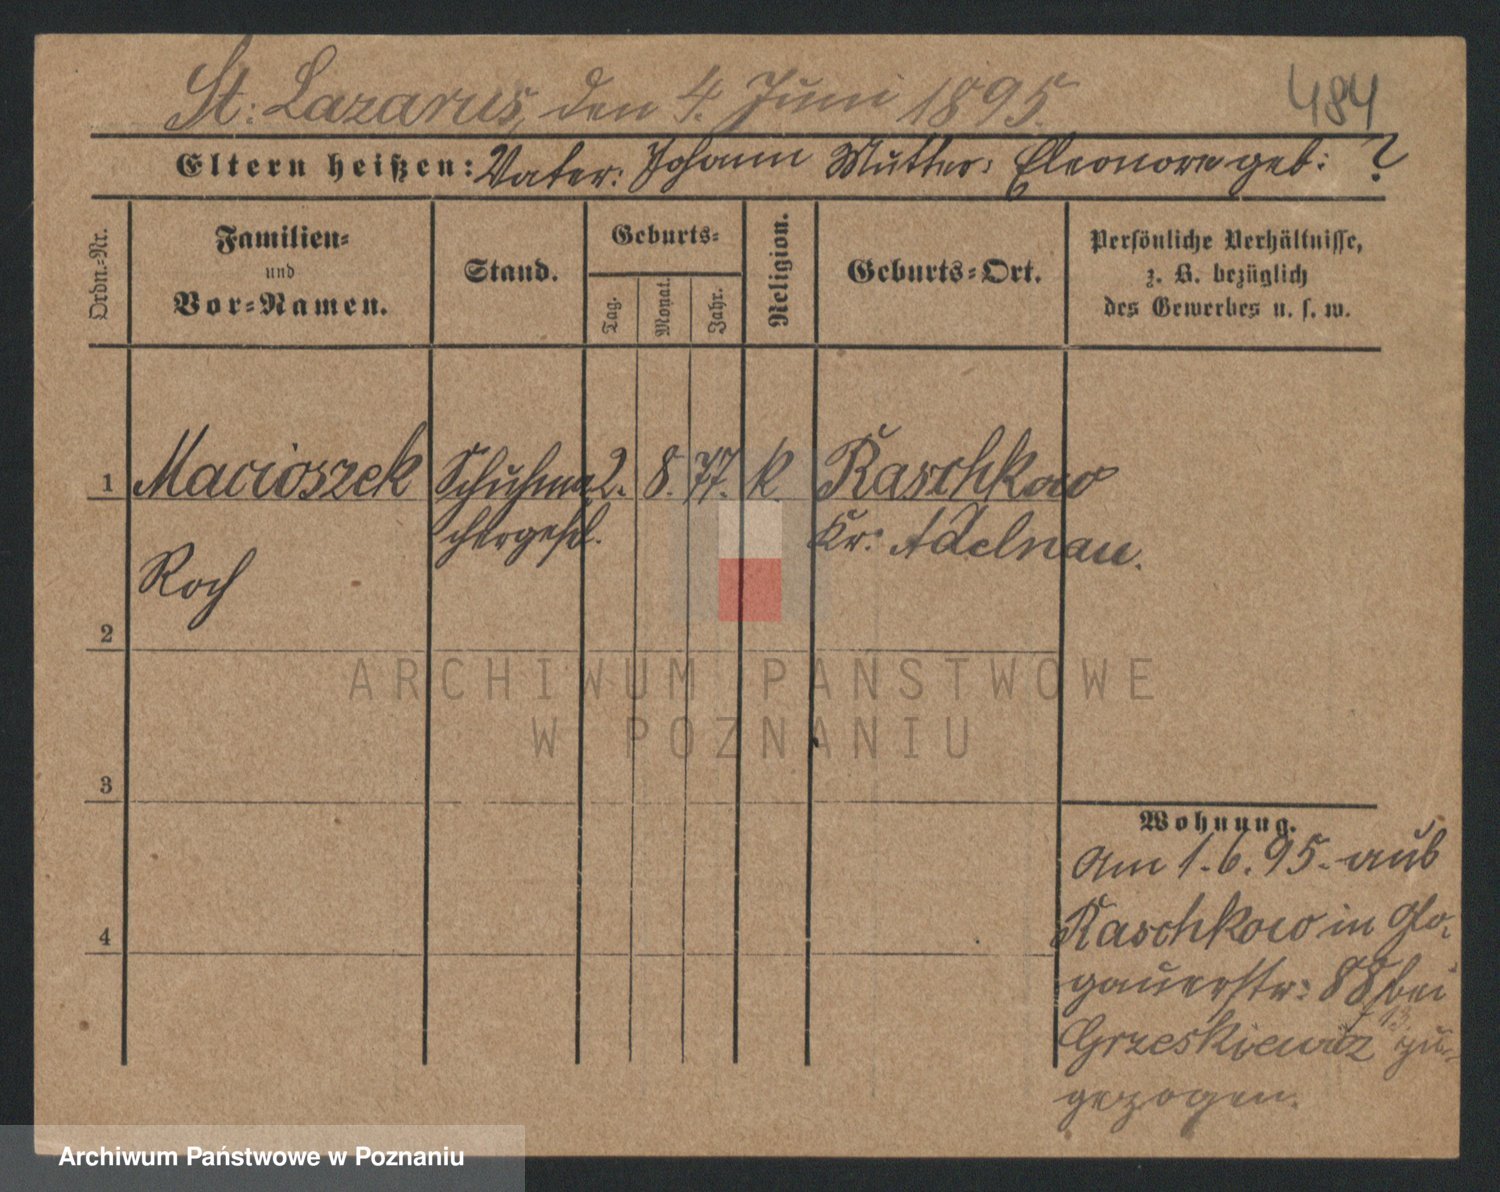 St. Lazarus, den 4. Juni 1895.
484
Eltern heißen: Vater: Johann Mutter: Eleonore geb: ?
Ordn.-Nr.
Familien-
und
Vor-Namen.
Stand.
Geburts-
Tag.
Monat.
Jahr.
Religion.
Geburts-Ort.
Persönliche Verhältnisse,
z. B. bezüglich
des Gewerbes u. s. w.
1 Macioszek Schuhma 2. 8. 77. k Raschkow
chergesl. Kr. Adelnau.
Roch
2
3
4
Wohnung.
Am 1.6.95. aus
Raschkow in Glo-
gauerstr: 88 bei
Grzeskiewicz zu-
gezogen.
ARCHIWUM PAŃSTWOWE
W POZNANIU
Archiwum Państwowe w Poznaniu